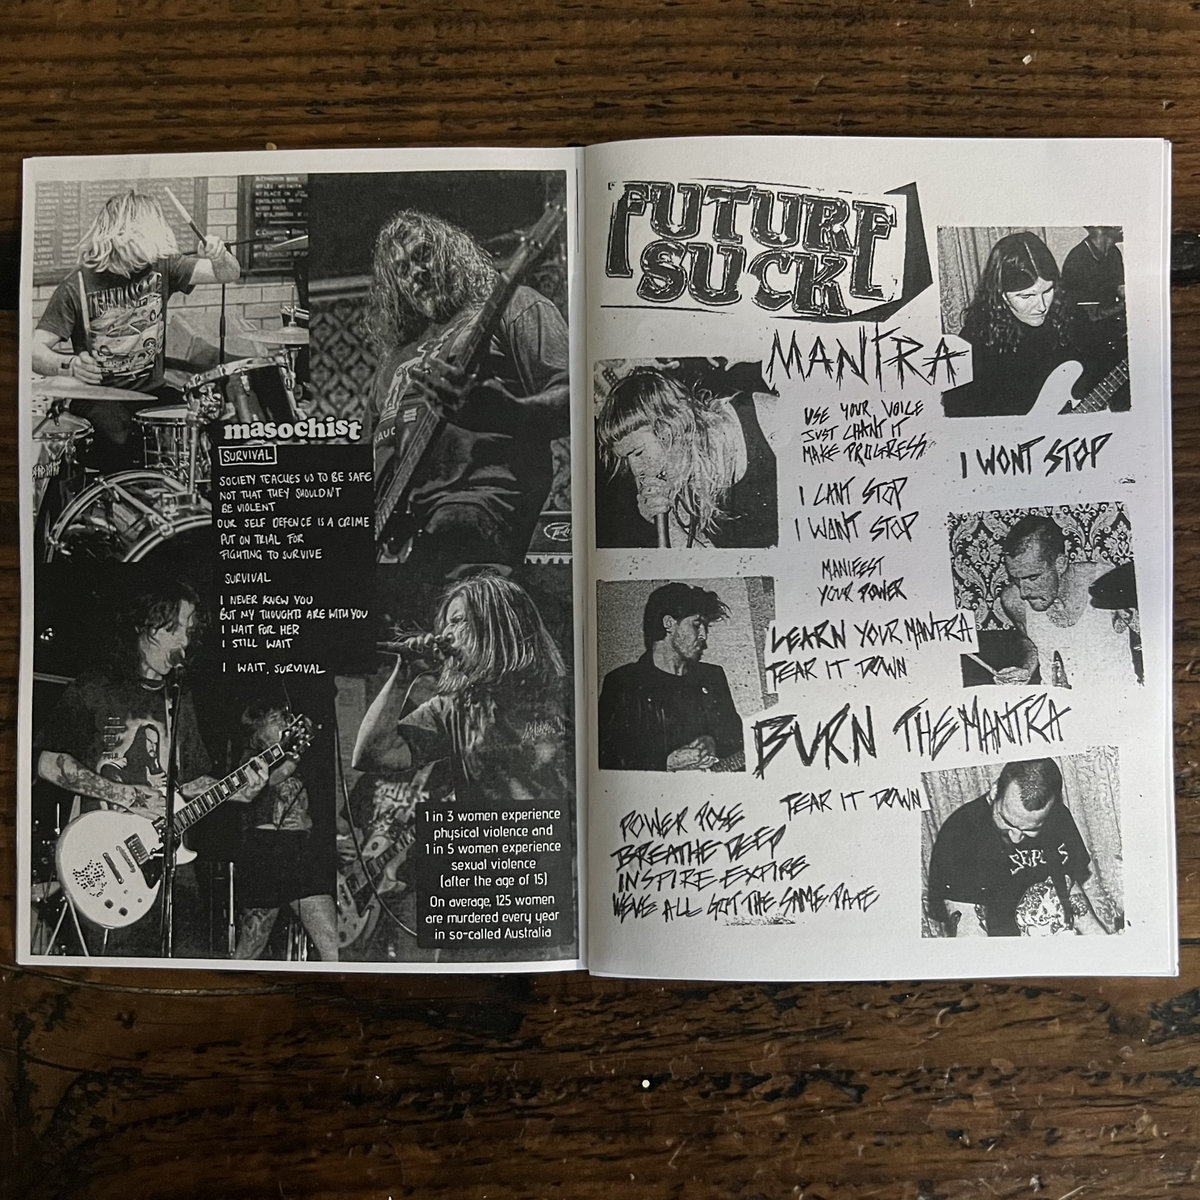 masochist
SURVIVAL
SOCIETY TEACHES US TO BE SAFE
NOT THAT THEY SHOULDN'T
BE VIOLENT
OUR SELF DEFENCE IS A CRIME
PUT ON TRIAL FOR
FIGHTING TO SURVIVE
SURVIVAL
I NEVER KNEW YOU
BUT MY THOUGHTS ARE WITH YOU
I WAIT FOR HER
I STILL WAIT
I WAIT, SURVIVAL
1 in 3 women experience
physical violence and
1 in 5 women experience
sexual violence
(after the age of 15)
On average, 125 women
are murdered every year
in so-called Australia
FUTURE
SUCK
MANTRA
USE YOUR VOICE
JUST CHANT IT
MAKE PROGRESS
I WONT STOP
I CANT STOP
I WONT STOP
MANIFEST
YOUR POWER
LEARN YOUR MANTRA
TEAR IT DOWN
BURN THE MANTRA
TEAR IT DOWN
POWER POSE
BREATHE DEEP
INSPIRE EXPIRE
WEVE ALL GOT THE SAME DATE